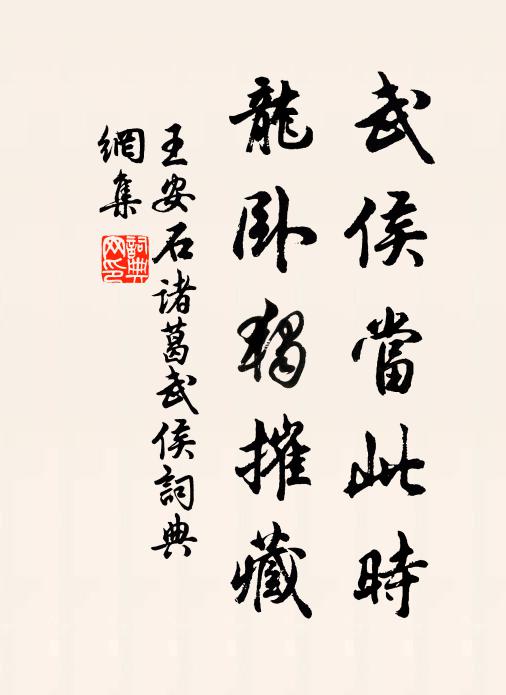 武侯當此時
龍卧獨摧藏
王安石諸葛武侯詞典
網集
詞典網印